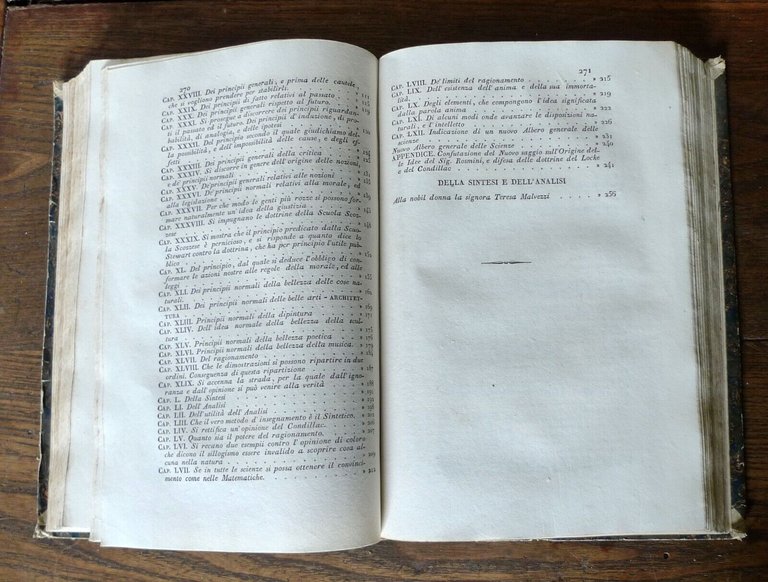 270
CAP. XXVIII. Dei principii generali, e prima delle cautele,
che si vogliono prendere per stabilirli. » 111
CAP. XXIX. Dei principii di fatto relativi al passato. »
CAP. XXX. Dei principii generali rispetto al futuro. »
CAP. XXXI. Si prosegue a discorrere dei principii riguardan-
ti il passato ed il futuro. De' principii d'induzione, di pro-
babilità, di analogia, e delle ipotesi
CAP. XXXII. Del principio secondo il quale giudichiamo del-
la possibilità, e dell'impossibilità delle cause, e degli ef-
fetti
CAP. XXXIII. Dei principii generali della critica
CAP. XXXIV. Si discorre in genere dell'origine delle nozioni,
e de' principii normali
CAP. XXXV. De' principii generali relativi alle nozioni
CAP. XXXVI. De' principii normali relativi alla morale, ed
alla legislazione
CAP. XXXVII. Per che modo le genti più rozze si possono for-
mare naturalmente un'idea della giustizia
CAP. XXXVIII. Si impugnano le dottrine della Scuola Scoz-
zese
CAP. XXXIX. Si mostra che il principio predicato dalla Scuo-
la Scozzese è pernicioso, e si risponde a quanto dice lo
Stewart contro la dottrina, che ha per principio l'utile pub-
blico
CAP. XL. Del principio, dal quale si deduce l'obbligo di con-
formare le azioni nostre alle regole della morale, ed alle
leggi
CAP. XLI. Dei principii normali della bellezza delle cose na-
turali.
CAP. XLII. Dei principii normali delle belle arti - ARCHITET-
TURA
CAP. XLIII. Principii normali della dipintura
CAP. XLIV. Dell'idea normale della bellezza della scul-
tura
CAP. XLV. Principii normali della bellezza poetica
CAP. XLVI. Principii normali della bellezza della musica.
CAP. XLVII. Del ragionamento
CAP. XLVIII. Che le dimostrazioni si possono ripartire in due
ordini. Conseguenza di questa ripartizione
CAP. XLIX. Si accenna la strada, per la quale dall'igno-
ranza e dall'opinione si può venire alla verità
CAP. L. Della Sintesi
CAP. LI. Dell'Analisi
CAP. LII. Dell'utilità dell'Analisi
CAP. LIII. Che il vero metodo d'insegnamento è il Sintetico.
CAP. LIV. Si rettifica un'opinione del Condillac.
CAP. LV. Quanto sia il potere del ragionamento.
CAP. LVI. Si recano due esempii contro l'opinione di coloro
che dicono il sillogismo essere invalido a scoprire cosa al-
cuna nella natura » 209
CAP. LVII. Se in tutte le scienze si possa ottenere il convinci-
mento come nelle Matematiche. » 212
271
CAP. LVIII. De' limiti del ragionamento » 215
CAP. LIX. Dell'esistenza dell'anima e della sua immorta-
lità. » 219
CAP. LX. Degli elementi, che compongono l'idea significata
dalla parola anima » 222
CAP. LXI. Di alcuni modi onde avanzare le disposizioni na-
turali, e l'intelletto » 226
CAP. LXII. Indicazione di un nuovo Albero generale delle
scienze » 231
Nuovo Albero generale delle Scienze » 240
APPENDICE. Confutazione del Nuovo saggio sull'Origine del-
le Idee del Sig. Rosmini, e difesa delle dottrine del Locke
e del Condillac » 241
DELLA SINTESI E DELL'ANALISI
Alla nobil donna la signora Teresa Malvezzi » 256